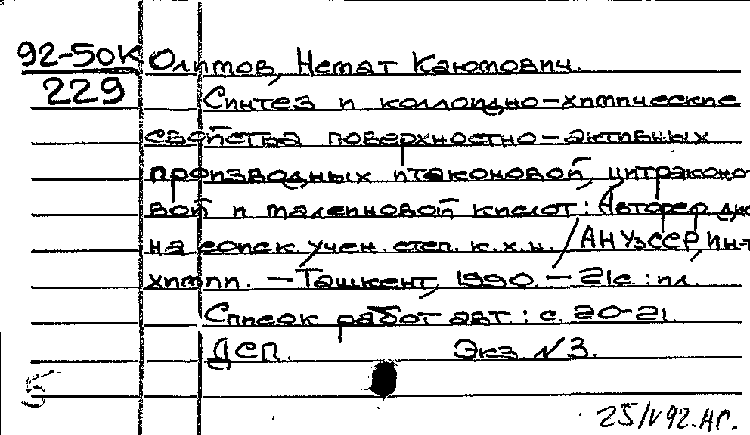 92-50К Олимов, Немат Каюмович.
229 Синтез и коллоидно-химические
свойства поверхностно-активных
производных итаконовой, цитраконо-
вой и малеиновой кислот: Автореф. дис.
на соиск. учен. степ. к.х.н. / АН УзССР, Ин-т
химии. — Ташкент, 1990. — 21с.: ил.
Список работ авт.: с. 20-21.
ДСП. Экз. № 3.
25/V 92. НГ.